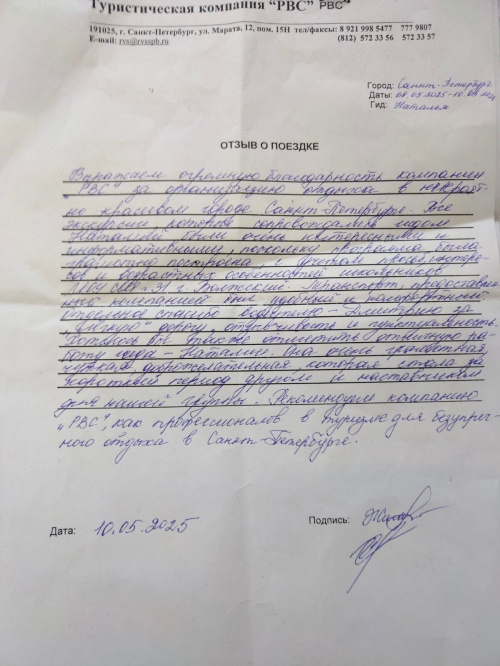 Туристическая компания “РВС” РВС
191025, г. Санкт-Петербург, ул. Марата, 12, пом. 15Н тел/факсы: 8 921 998 5477 777 9807
E-mail: rvs@rvsspb.ru (812) 572 33 56 572 33 57
Город: Санкт-Петербург
Даты: 08.05.2025-10.05
Гид: Наталья
ОТЗЫВ О ПОЕЗДКЕ
Выражаем огромную благодарность компании
"РВС" за организацию отдыха в
но красивом городе Санкт-Петербурге. Все
экскурсии, которые сопровождались гидом
Натальей были очень интересными и
информативными, поскольку программа была
построена с учетом
и возрастных особенностей школьников
31 г. Волжский. Транспорт, предоставлен
компанией был удобный и комфортный
Отдельное спасибо водителю - Дмитрию за
„мягкую" дорогу, отзывчивость и пунктуальность.
Хотелось бы также отметить отличную ра-
боту гида - Наталии. Она очень грамотная,
чуткая, доброжелательная, которая стала за
короткий период другом и наставником
для нашей группы. Рекомендуем компанию
„РВС", как профессионалов в туризме для безупреч-
ного отдыха в Санкт-Петербурге.
Дата: 10.05.2025
Подпись: